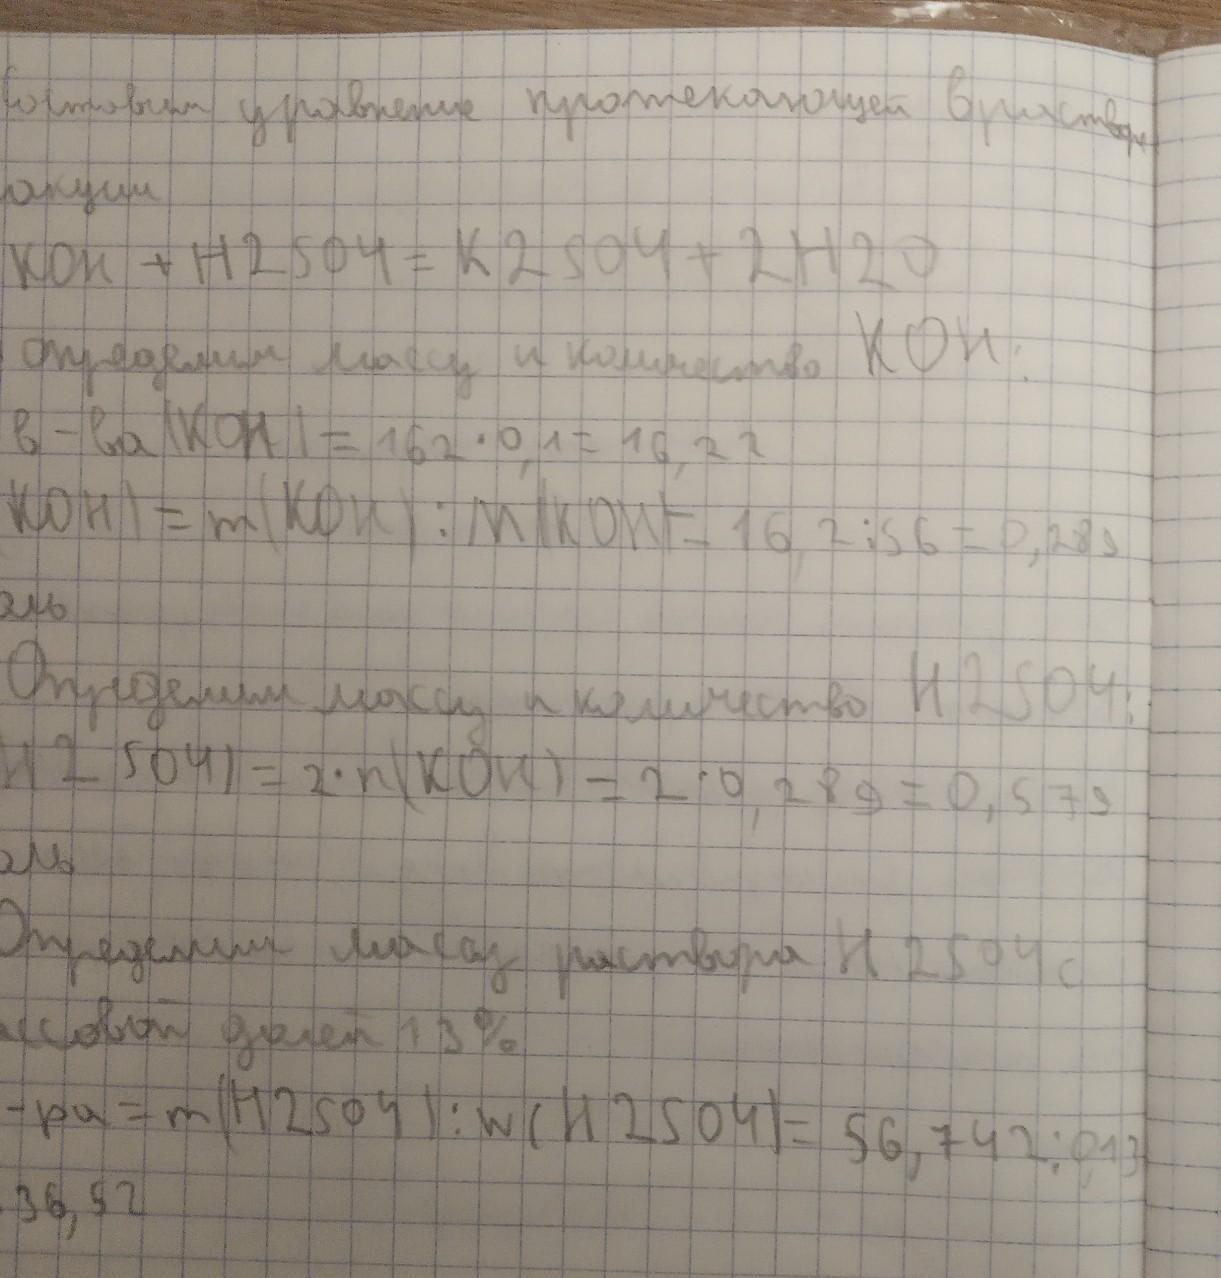 Составим уравнение протекающей в растворе
акции
KOH + H2SO4 = K2SO4 + 2H2O
определим массу и количество KOH:
в-ва(KOH) = 162·0,1 = 16,2г
KOH) = m(KOH) : M(KOH) = 16,2:56 = 0,289
оль
Определим массу и количество H2SO4:
H2SO4) = 2·n(KOH) = 2·0,289 = 0,579
оль
Определим массу раствора H2SO4 с
ассовой долей 13%
-ра = m(H2SO4) : w(H2SO4) = 56,742:0,13
36,52